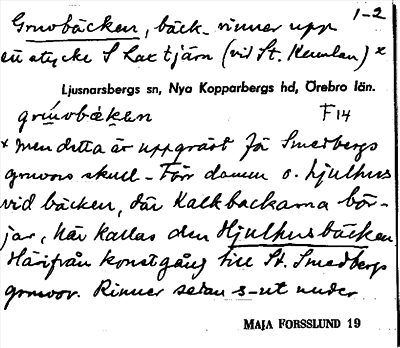 Gruvbäcken, bäck. rinner upp 1-2
ett stycke S Laxtjärn (vid St. Kumlan) x
Ljusnarsbergs sn, Nya Kopparbergs hd, Örebro län.
gruvbäken F14
x men detta är uppgrävt för Smedbergs
gruvors skull - Förr damm o. hjulhus
vid bäcken, där Kalkbackarna bör-
jar, här kallas den Hjulhusbäcken.
Härifrån konstgång till St. Smedbergs
gruvor. Rinner sedan s-ut under
MAJA FORSSLUND 19